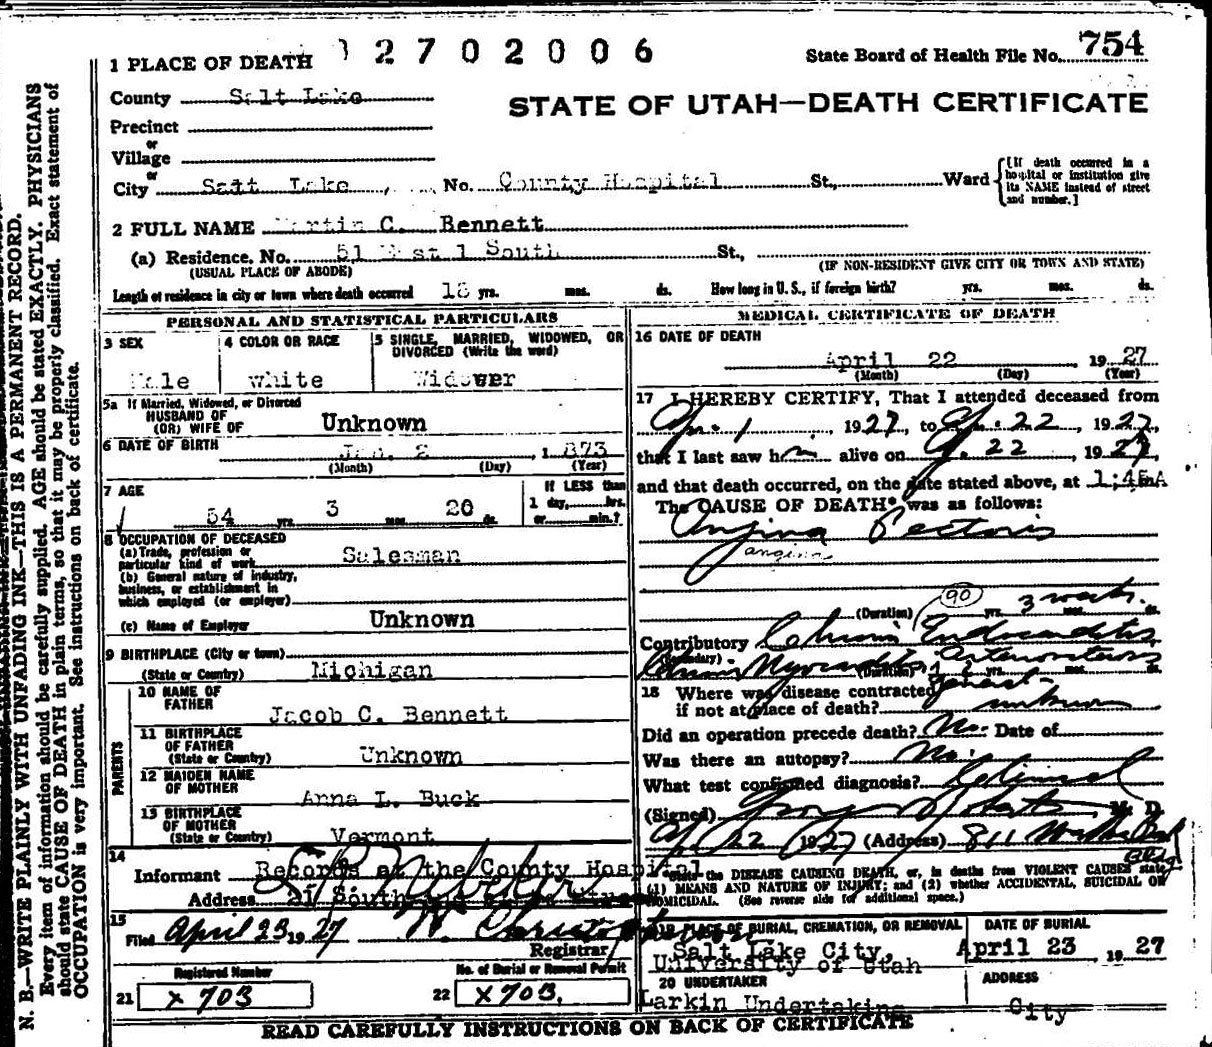 1 PLACE OF DEATH 2702006 State Board of Health File No. 754
County Salt Lake
STATE OF UTAH—DEATH CERTIFICATE
Precinct
or
Village
or
City Salt Lake, No. County Hospital St., Ward {[If death occurred in a hospital or institution give its NAME instead of street and number.]
2 FULL NAME Martin C. Bennett
(a) Residence, No. 51 st 1 South St.,
(USUAL PLACE OF ABODE) (IF NON-RESIDENT GIVE CITY OR TOWN AND STATE)
Length of residence in city or town where death occurred yrs. mos. ds. How long in U. S., if foreign birth? yrs. mos. ds.
PERSONAL AND STATISTICAL PARTICULARS
3 SEX
Male
4 COLOR OR RACE
White
5 SINGLE, MARRIED, WIDOWED, OR
DIVORCED (Write the word)
Widower
5a If Married, Widowed, or Divorced
HUSBAND OF
(OR) WIFE OF Unknown
6 DATE OF BIRTH Jan. 2, 1873
(Month) (Day) (Year)
7 AGE
54 yrs. 3 mos. 20 ds.
If LESS than
1 day, hrs.
or min.?
8 OCCUPATION OF DECEASED
(a) Trade, profession or
particular kind of work Salesman
(b) General nature of industry,
business, or establishment in
which employed (or employer)
(c) Name of Employer Unknown
9 BIRTHPLACE (City or town)
(State or Country) Michigan
PARENTS
10 NAME OF
FATHER
Jacob C. Bennett
11 BIRTHPLACE
OF FATHER
(State or Country) Unknown
12 MAIDEN NAME
OF MOTHER
Anna L. Buck
13 BIRTHPLACE
OF MOTHER
(State or Country) Vermont
14
Informant Records at the County Hospital
Address 21 South and State
15
Filed April 23 1927
Registrar
Registered Number
21 x 703
No. of Burial or Removal Permit
22 x 703.
MEDICAL CERTIFICATE OF DEATH
16 DATE OF DEATH
April 22, 1927
(Month) (Day) (Year)
17 I HEREBY CERTIFY, That I attended deceased from
Apr. 1, 1927, to Ap. 22, 1927,
that I last saw him alive on 22, 1927,
and that death occurred, on the date stated above, at 1:45A m
The CAUSE OF DEATH* was as follows:
Angina Pectoris
angina
90
(Duration) yrs. 3 weeks mos. ds.
Contributory Chronic Endocarditis
(Secondary) Chronic Myocarditis Arteriosclerosis
(Duration) yrs. mos. ds.
18 Where was disease contracted
if not at place of death? unknown
Did an operation precede death? No. Date of
Was there an autopsy? No.
What test confirmed diagnosis? Clinical
(Signed) George Roberts M. D.
Ap 22 1927 (Address) 811 Bldg
*State the DISEASE CAUSING DEATH, or, in deaths from VIOLENT CAUSES state
(1) MEANS AND NATURE OF INJURY; and (2) whether ACCIDENTAL, SUICIDAL OR
HOMICIDAL. (See reverse side for additional space.)
19 PLACE OF BURIAL, CREMATION, OR REMOVAL
Salt Lake City,
University of Utah
DATE OF BURIAL
April 23 1927
20 UNDERTAKER
Larkin Undertaking
ADDRESS
City
READ CAREFULLY INSTRUCTIONS ON BACK OF CERTIFICATE
N. B.—WRITE PLAINLY WITH UNFADING INK—THIS IS A PERMANENT RECORD.
Every item of information should be carefully supplied. AGE should be stated EXACTLY. PHYSICIANS
should state CAUSE OF DEATH in plain terms, so that it may be properly classified. Exact statement of
OCCUPATION is very important. See instructions on back of certificate.